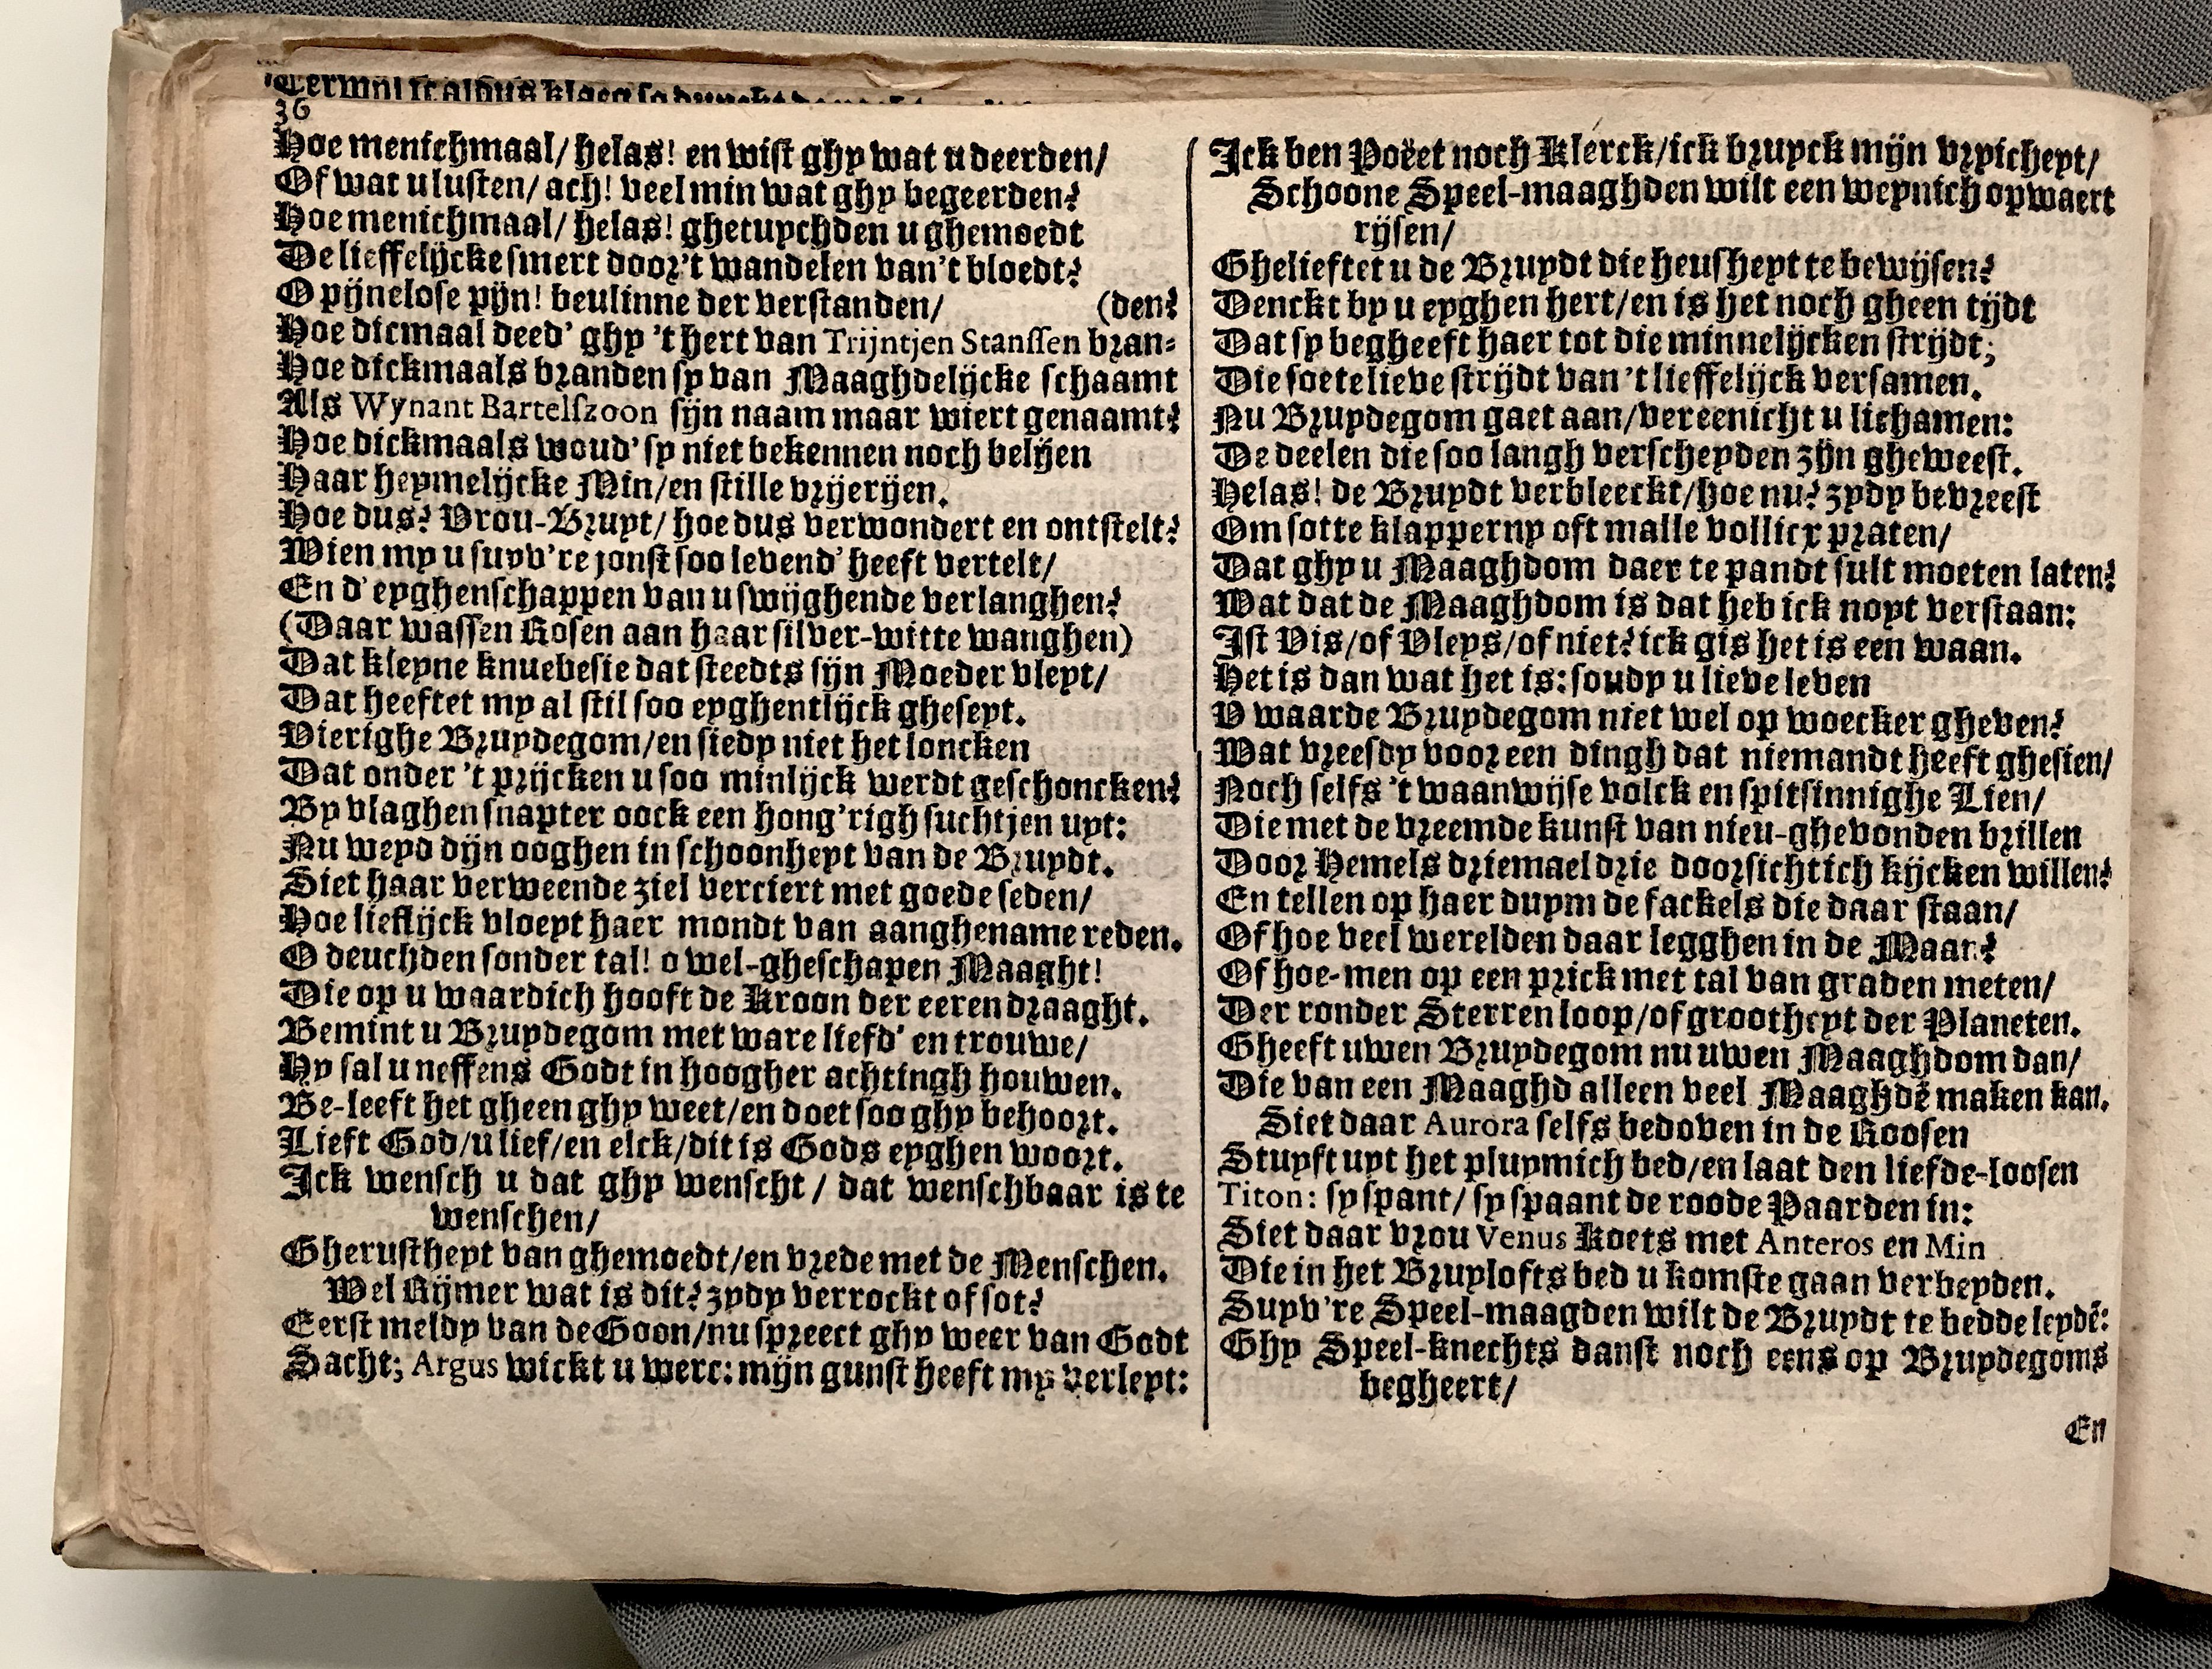 36
Hoe menichmaal/ helas! en wist ghy wat u deerden/
Of wat u lusten/ ach! veel min wat ghy begeerden?
Hoe menichmaal/ helas! ghetuychden u ghemoedt
De lieffelijcke smert door 't wandelen van 't bloedt?
O pijnelose pijn! beulinne der verstanden/ (den?
Hoe dicmaal deed' ghy 't hert van Trijntjen Stanssen bran-
Hoe dickmaals branden sy van Maaghdelijcke schaamt
Als Wynant Bartelszoon sijn naam maar wiert genaamt?
Hoe dickmaals woud' sy niet bekennen noch belijen
Haar heymelijcke Min/ en stille vrijerijen.
Hoe dus? Vrou-Bruyt/ hoe dus verwondert en ontstelt?
Wien my u suyv're jonst soo levend' heeft vertelt/
En d' eyghenschappen van u swijghende verlanghen?
(Daar wassen Rosen aan haar silver-witte wanghen)
Dat kleyne knuevesie dat steedts sijn Moeder vleyt/
Dat heeftet my al stil soo eyghentlijck gheseyt.
Vierighe Bruydegom/ en siedy niet het loncken
Dat onder 't prijcken u soo minlijck werdt geschoncken?
By vlaghen snapter oock een hong'righ suchtjen uyt:
Nu weyd dijn ooghen in schoonheyt van de Bruydt.
Siet haar verweende ziel verciert met goede seden/
Hoe lieflijck vloeyt haer mondt van aanghename reden.
O deuchden sonder tal! o wel-gheschapen Maaght!
Die op u waardich hooft de Kroon der eeren draaght.
Bemint u Bruydegom met ware liefd' en trouwe/
Hy sal u neffens Godt in hoogher achtingh houwen.
Be-leeft het gheen ghy weet/ en doet soo ghy behoort.
Lieft God/ u lief/ en elck/ dit is Gods eyghen woort.
Ick wensch u dat ghy wenscht/ dat wenschbaar is te
wenschen/
Gherustheyt van ghemoedt/ en vrede met de Menschen.
Wel Rijmer wat is dit? zydy verrockt of sot?
Eerst meldy van de Goon/ nu spreect ghy weer van Godt
Sacht; Argus wickt u werc: mijn gunst heeft my verleyt:
Ick ben Poëet noch Klerck/ ick bruyck mijn vryicheyt/
Schoone Speel-maaghden wilt een weynich opwaert
rijsen/
Ghelieftet u de Bruydt die heusheyt te bewijsen?
Denckt by u eyghen hert/ en is het noch gheen tijdt
Dat sy begheeft haer tot die minnelijcken strijdt;
Die soete lieve strijdt van 't lieffelijck versamen.
Nu Bruydegom gaet aan/ vereenicht u lichamen:
De deelen die soo langh verscheyden zijn gheweest.
Helas! de Bruydt verbleeckt/ hoe nu? zydy bevreest
Om sotte klapperny oft malle vollicx praten/
Dat ghy u Maaghdom daer te pandt sult moeten laten?
Wat dat de Maaghdom is dat heb ick noyt verstaan:
Ist Vis/ of Vleys/ of niet? ick gis het is een waan.
Het is dan wat het is: soudy u lieve leven
U waarde Bruydegom niet wel op woecker gheven?
Wat vreesdy voor een dingh dat niemandt heeft ghesien/
Noch selfs 't waanwijse volck en spitsinnighe Lien/
Die met de vreemde kunst van nieu-ghevonden brillen
Door Hemels driemael drie doorsichtich kijcken willen?
En tellen op haer duym de fackels die daar staan/
Of hoe veel werelden daar legghen in de Maan?
Of hoe-men op een prick met tal van graden meten/
Der ronder Sterren loop/ of grootheyt der Planeten.
Gheeft uwen Bruydegom nu uwen Maaghdom dan/
Die van een Maaghd alleen veel Maaghdē maken kan.
Siet daar Aurora selfs bedoven in de Roosen
Stuyft uyt het pluymich bed/ en laat den liefde-loosen
Titon: sy spant/ sy spaant de roode Paarden in:
Siet daar vrou Venus Koets met Anteros en Min
Die in het Bruylofts bed u komste gaan verbeyden.
Suyv're Speel-maagden wilt de Bruydt te bedde leydē:
Ghy Speel-knechts danst noch eens op Bruydegoms
begheert/
En